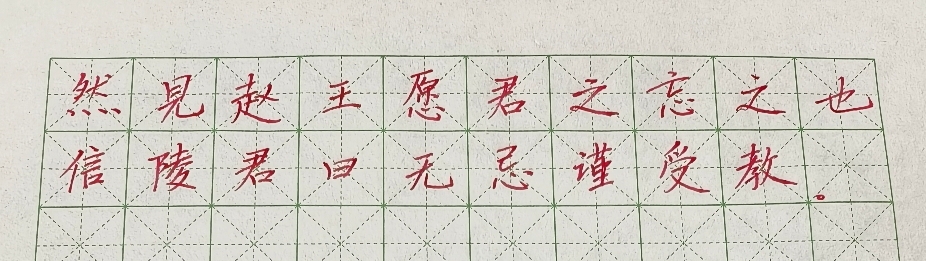 然見赵王愿君之忘之也
信陵君曰无忌谨受教。